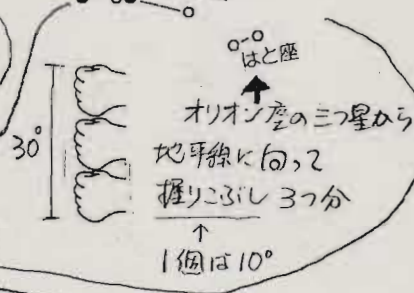 はと座
オリオン座の三つ星から
30°
地平線に向って
握りこぶし 3つ分
↑
1個は10°